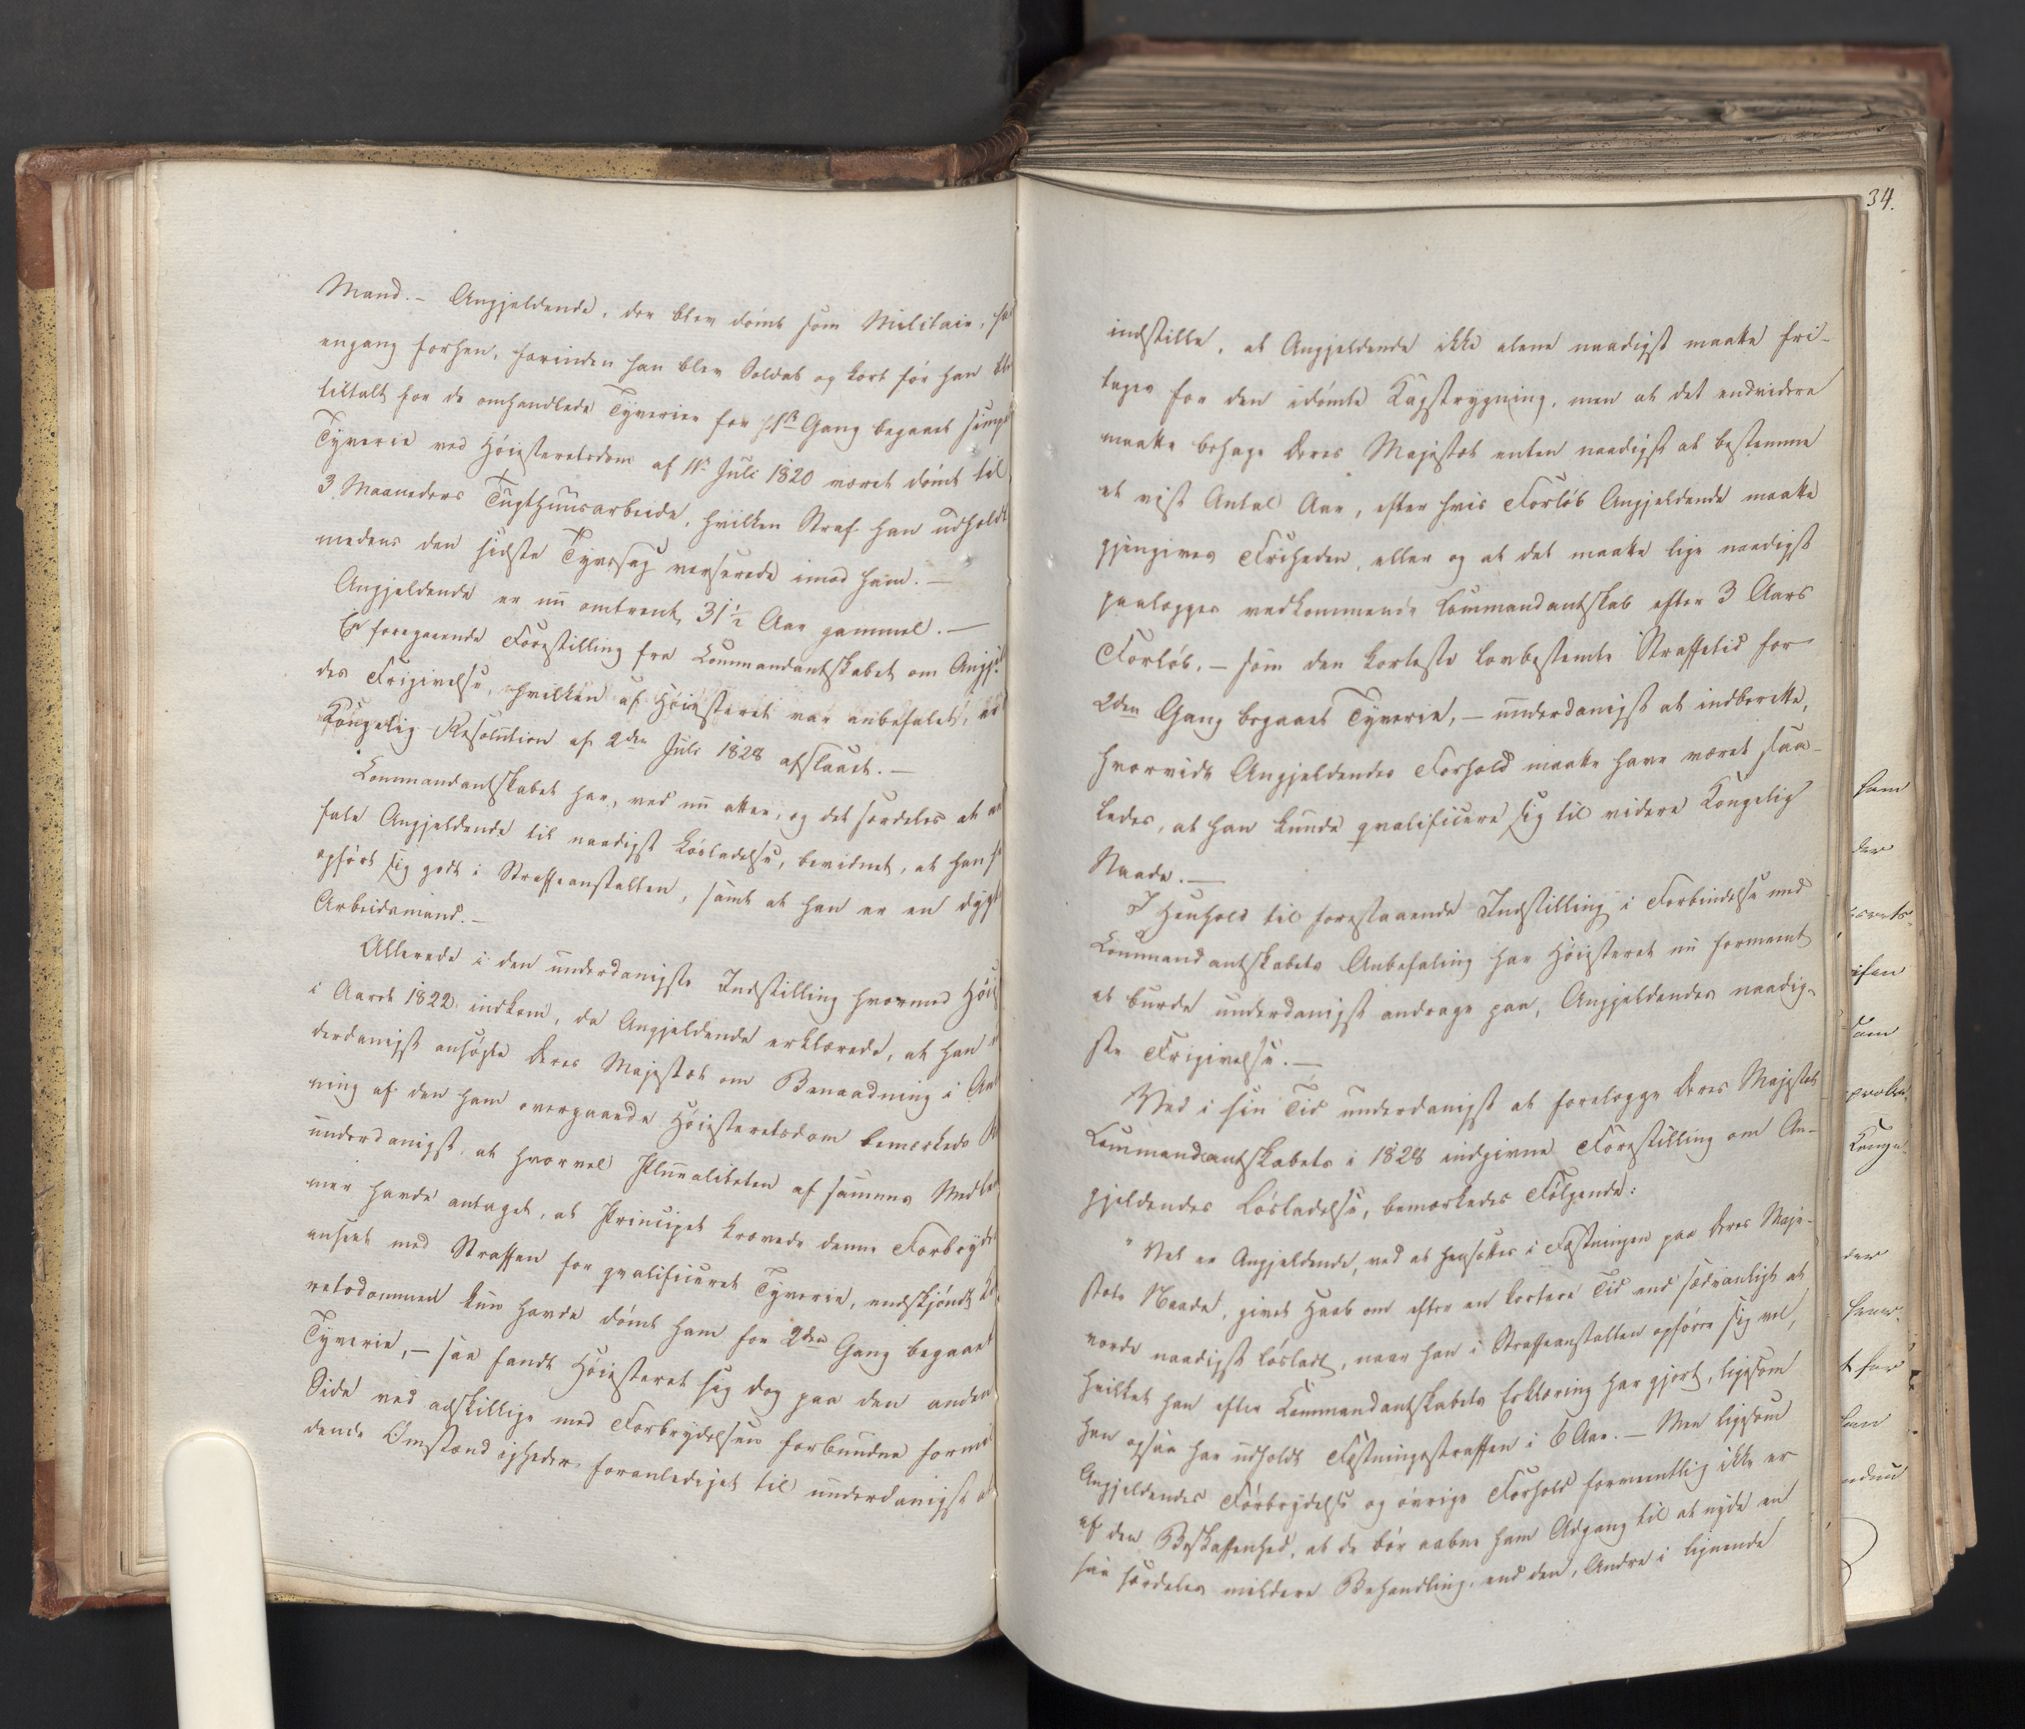 Mand. – Angjeldende, der blev dömt som Militair, ha
engang forhen, forinden han blev Soldat og kort för han ble
tiltalt for de omhandlede Tyverier for 1ste Gang begaaet simpe
Tyverie ved Höiesteretsdom af 11te Juli 1820 været dömt til
3 Maaneders Tugthuusarbeide, hvilken Straf han udholdt
medens den sidste Tyvssag verserede imod ham. –
Angjeldende er nu omtrent 31½ Aar gammel. –
En foregaaende Forestilling fra Commandantskabet om Angjel
des Frigivelse, hvilken af Höiesteret var anbefalet, er
Kongelig Resolution af 2den Juli 1828 afslaaet. –
Commandantskabet har, ved nu atter, og det særdeles at an
fale Angjeldende til naadigst Lösladelse, bevidnet, at han h
opfört sig godt i Straffeanstalten, samt at han er en dygt
Arbeidsmand. –
Allerede i den underdanigste Indstilling hvormed Höie
i Aaret 1822 indkom, da Angjeldende erklærede, at han u
derdanigst ansögte Deres Majestæt om Benaadning i An
ning af den ham overgaaede Höiesteretsdom bemærkede R
underdanigst, at hvorvel Pluraliteten af sammes Medlem
mer havde antaget, at Principet krævede denne Forbryder
anseet med Straffen for qvalificeret Tyverie, endskjöndt K
retsdommen kun havde dömt ham for 2den Gang begaaet
Tyverie, – saa fandt Höiesteret sig dog paa den anden
Side ved adskillige med Forbrydelsen forbundne formil
dende Omstændigheder foranlediget til underdanigst at
34.
indstille, at Angjeldende ikke alene naadigst maatte fri-
tages for den idömte Kagstrygning, men at det endvidere
maatte behage Deres Majestæt enten naadigst at bestemme
et vist Antal Aar, efter hvis Forlöb Angjeldende maatte
gjengives Friheden, eller og at det maatte lige naadigst
paalægges vedkommende Commandantskab efter 3 Aars
Forlöb, – som den korteste lovbestemte Straffetid for
2den Gang begaaet Tyverie, – underdanigst at indberette,
hvorvidt Angjeldendes Forhold maatte have været saa-
ledes, at han kunde qvalificere sig til videre Kongelig
Naade. –
I Henhold til forestaaende Indstilling i Forbindelse med
Commandantskabets Anbefaling har Höiesteret nu formeent
at burde underdanigst andrage paa, Angjeldendes naadig-
ste Frigivelse. –
Ved i sin Tid underdanigst at forelægge Deres Majestæt
Commandantskabets i 1828 indgivne Forestilling om An-
gjeldendes Lösladelse, bemærkedes Fölgende:
" Vel er Angjeldende, ved at hensættes i Fæstningen paa Deres Maje-
stæts Naade, givet Haab om efter en kortere Tid end sædvanligt at
vorde naadigst lösladt, naar han i Straffeanstalten opförer sig vel,
hvilket han efter Commandantskabets Erklæring har gjort, ligesom
han ogsaa har udholdt Fæstningsstraffen i 6 Aar. – Men ligesom
Angjeldendes Forbrydelse og övrige Forhold formeentlig ikke er
af den Beskaffenhed, at de bör aabne ham Adgang til at nyde en
saa særdeles mildere Behandling, end den, Andre i lignende